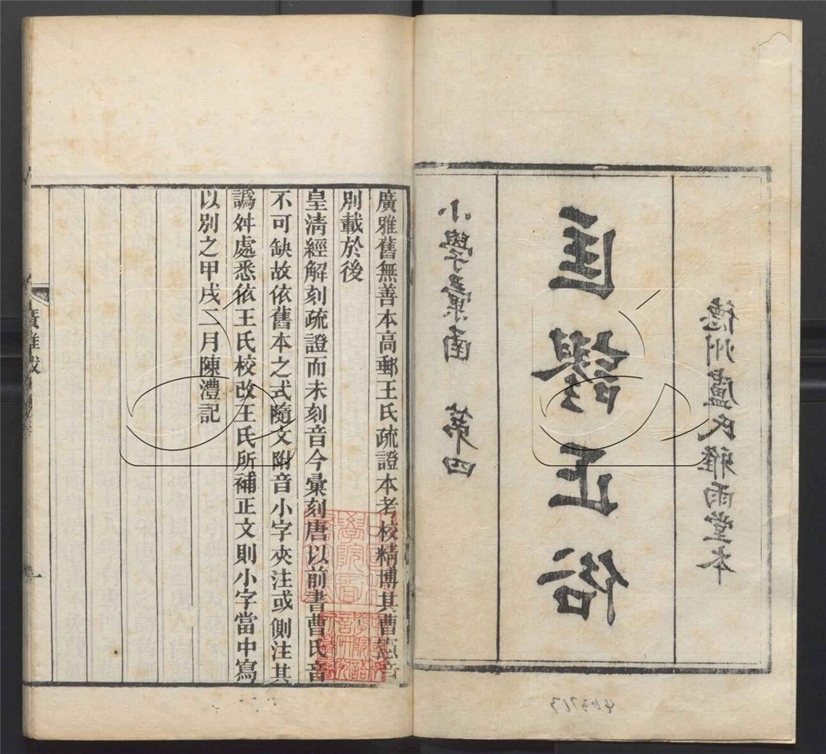 德州盧氏雅雨堂本
匡謬正俗
小學彙函 第四
廣雅舊無善本高郵王氏疏證本考校精博其曹憲音
別載於後
皇清經解刻疏證而未刻音今彙刻唐以前書曹氏音
不可缺故依舊本之式隨文附音小字夾注或側注其
譌舛處悉依王氏校改王氏所補正文則小字當中寫
以別之甲戌二月陳澧記
廣雅跋
一